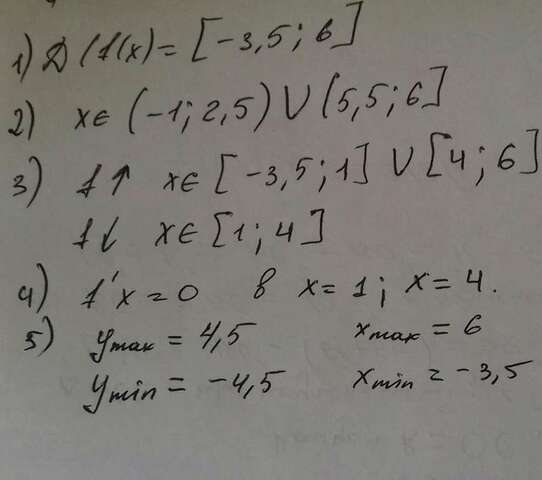 1) D (f(x) = [-3,5; 6]
2) x∈ (-1; 2,5) ∪ (5,5; 6]
3) f↑ x∈ [-3,5; 1] ∪ [4; 6]
f↓ x∈ [1; 4]
4) f'x = 0 в x = 1; x = 4.
5) yмак = 4,5 xmax = 6
ymin = -4,5 xmin = -3,5